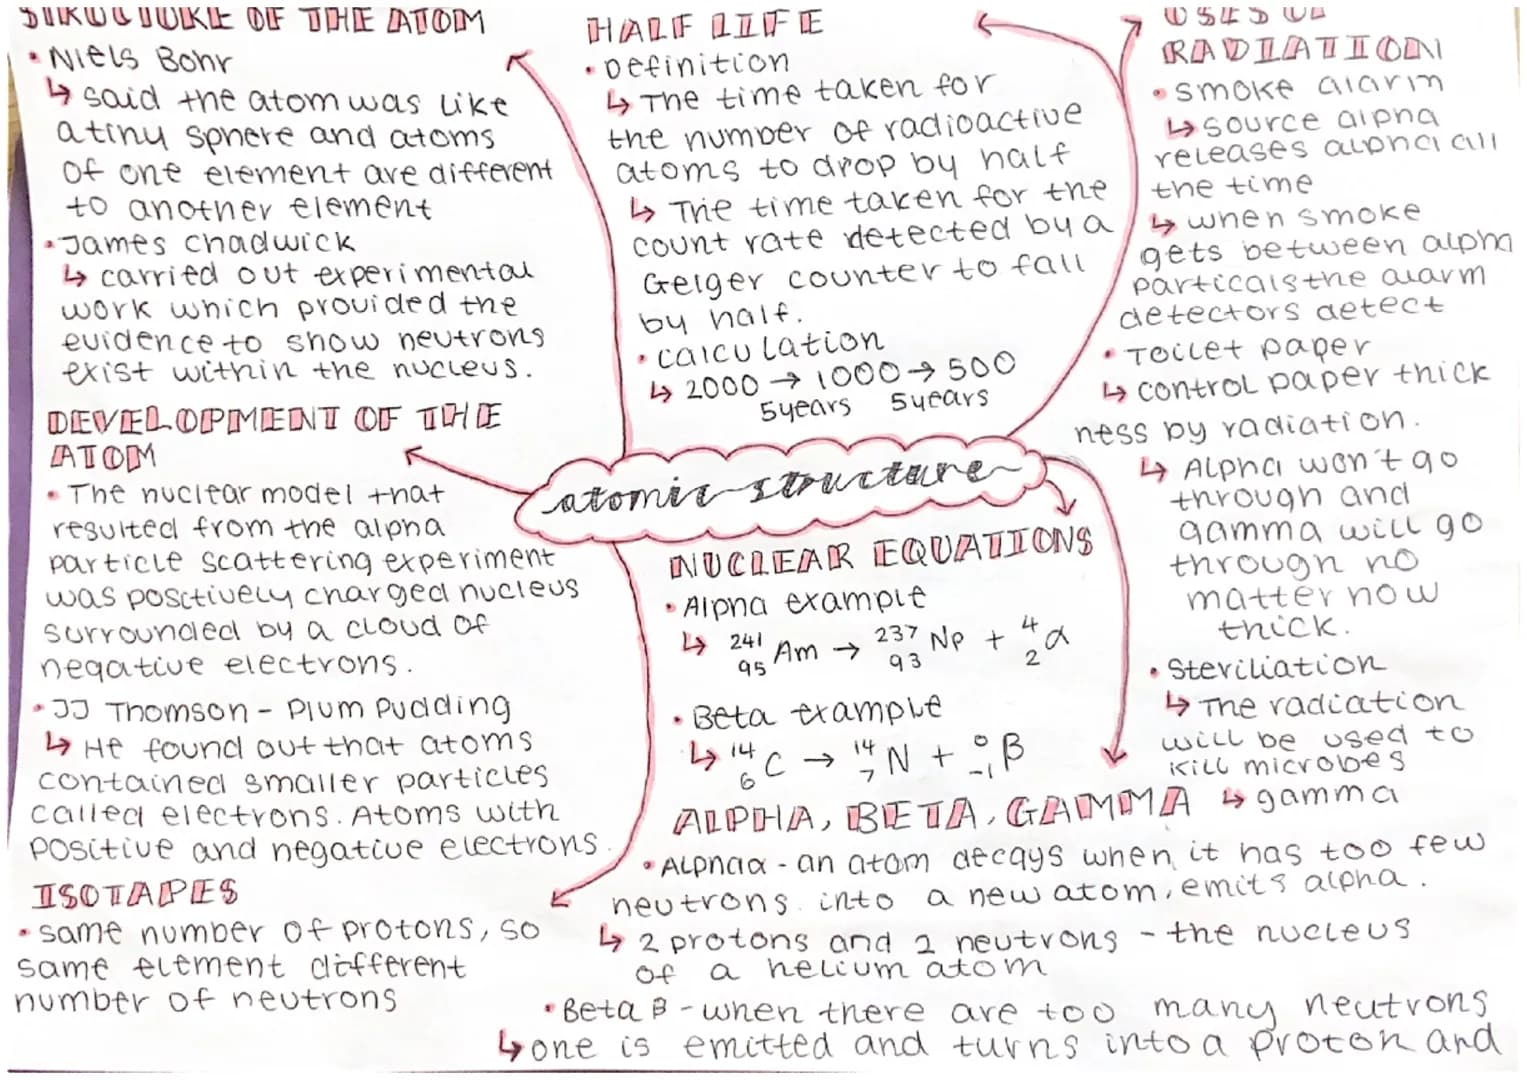 STRUCTURE OF THE ATOM
• Niels Bohr
↳ said the atom was like
a tiny sphere and atoms
of one element are different
to another element
• James Chadwick
↳ carried out experimental
work which provided the
evidence to show neutrons
exist within the nucleus.
DEVELOPMENT OF THE
ATOM
• The nuclear model that
resulted from the alpha
particle scattering experiment
was positively charged nucleus
surrounded by a cloud of
negative electrons.
• JJ Thomson - Plum Pudding
↳ He found out that atoms
contained smaller particles
called electrons. Atoms with
positive and negative electrons.
ISOTAPES
• same number of protons, so
same element different
number of neutrons
HALF LIFE
• Definition
↳ The time taken for
the number of radioactive
atoms to drop by half
↳ The time taken for the
count rate detected by a
Geiger counter to fall
by half.
• calculation
↳ 2000 → 1000 → 500
5years 5years
atomic structure
NUCLEAR EQUATIONS
• Alpha example
↳ 241 95 Am → 237 93 Np + 4 2 α
• Beta example
↳ 14 6 C → 14 7 N + 0 -1 β
USES OF
RADIATION
• smoke alarm
↳ source alpha
releases alpha all
the time
↳ when smoke
gets between alpha
particals the alarm
detectors detect
• Toilet paper
↳ control paper thick
ness by radiation.
↳ Alpha won't go
through and
gamma will go
through no
matter how
thick.
• Steriliation
↳ The radiation
will be used to
kill microbes
↳ gamma
ALPHA, BETA, GAMMA
• Alphaα - an atom decays when it has too few
neutrons into a new atom, emits alpha.
↳ 2 protons and 2 neutrons - the nucleus
of a helium atom
• Beta β - when there are too many neutrons
↳ one is emitted and turns into a proton and